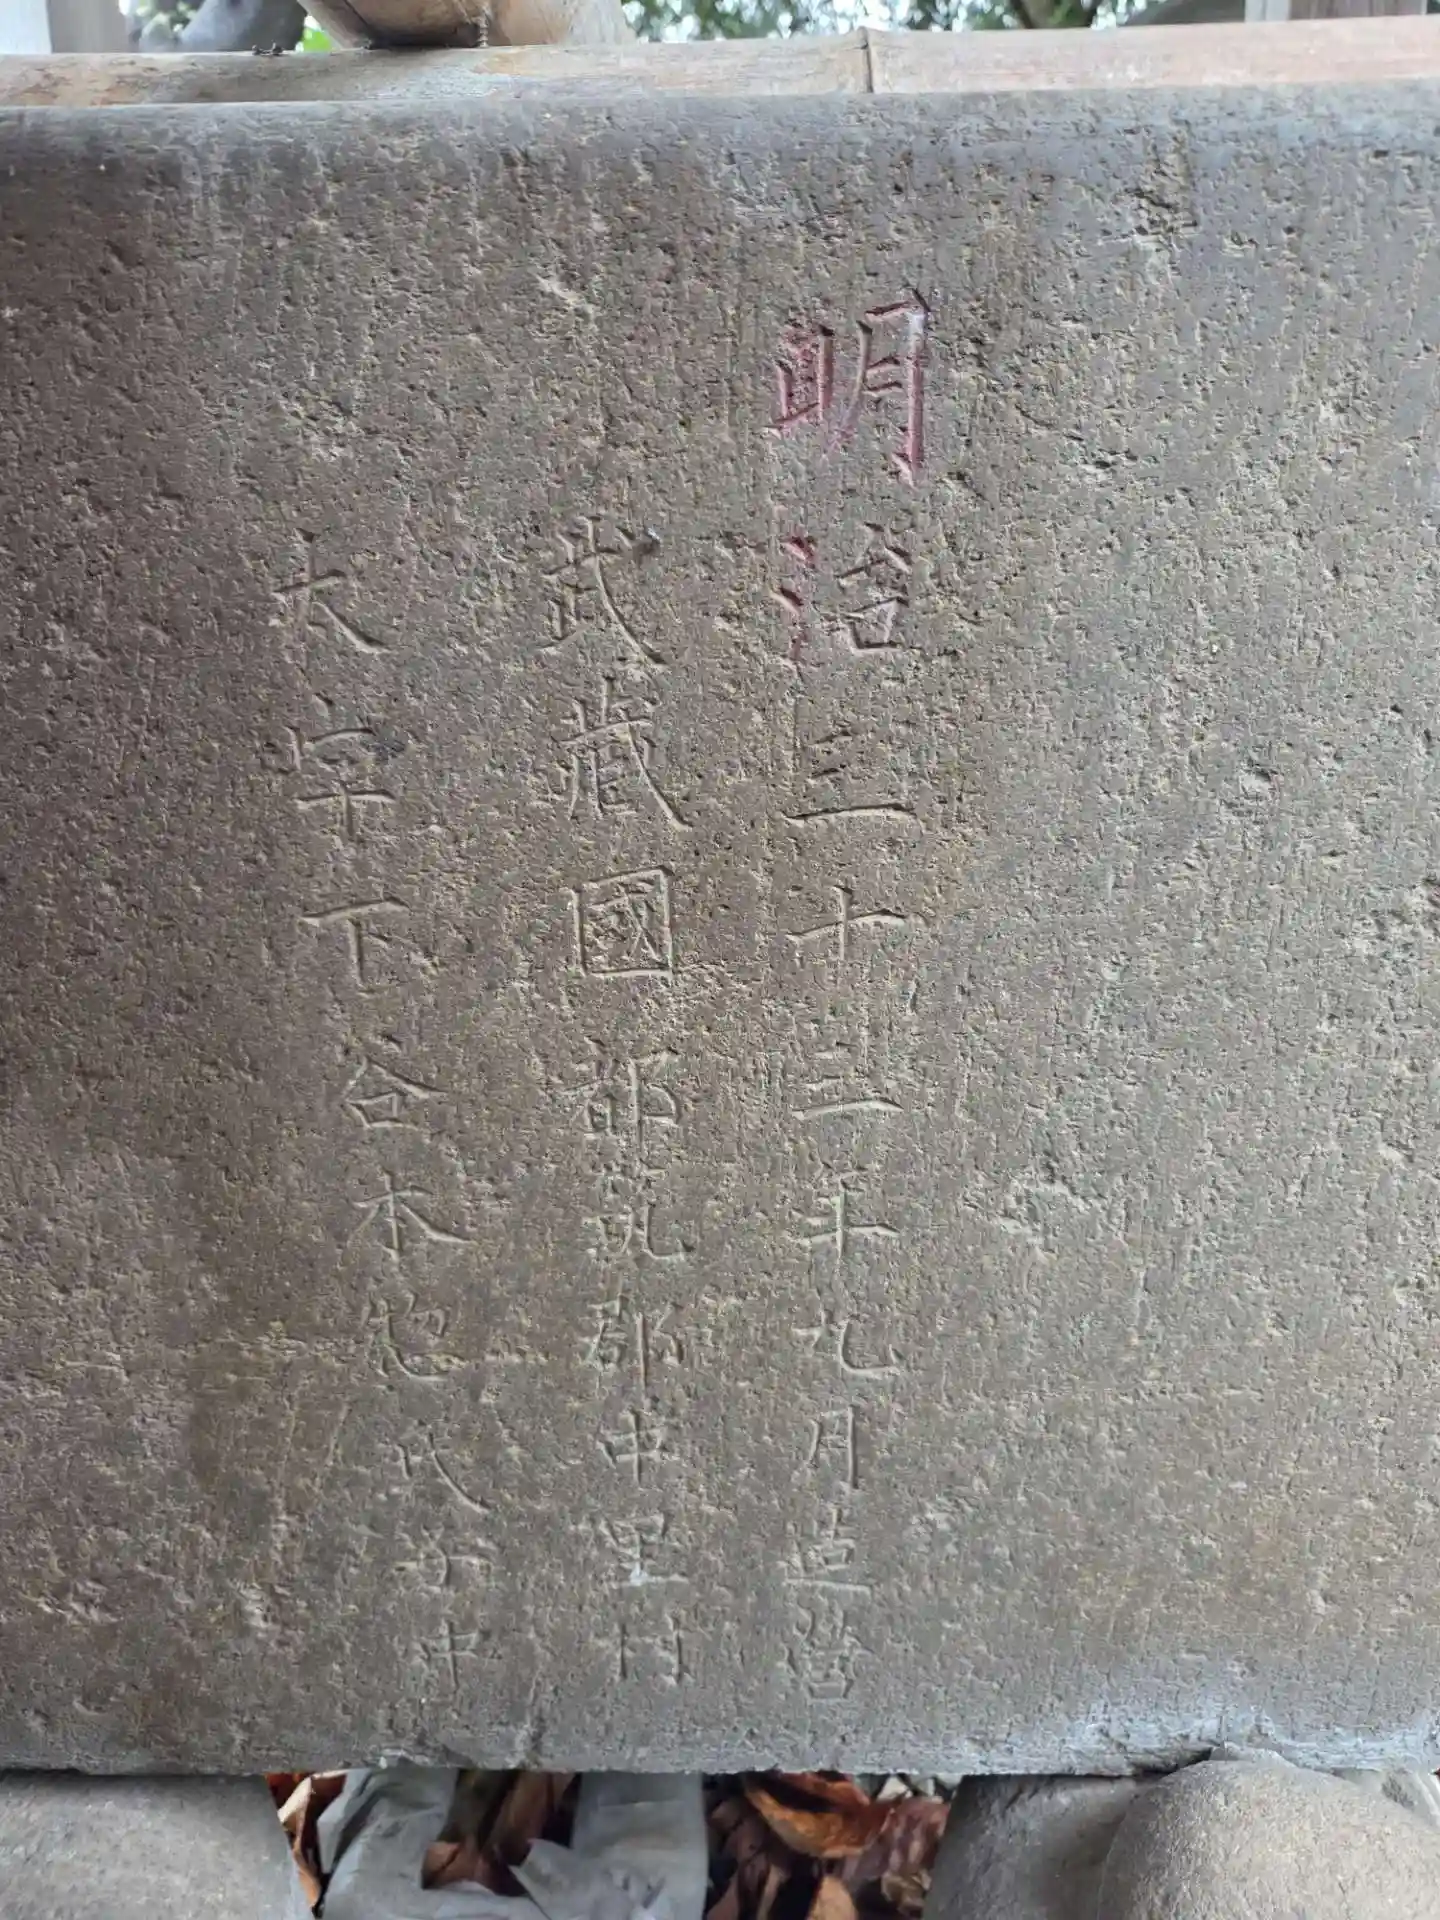 明治三十三年九月造営
武藏國都筑郡中里村
大字下谷本惣氏子中